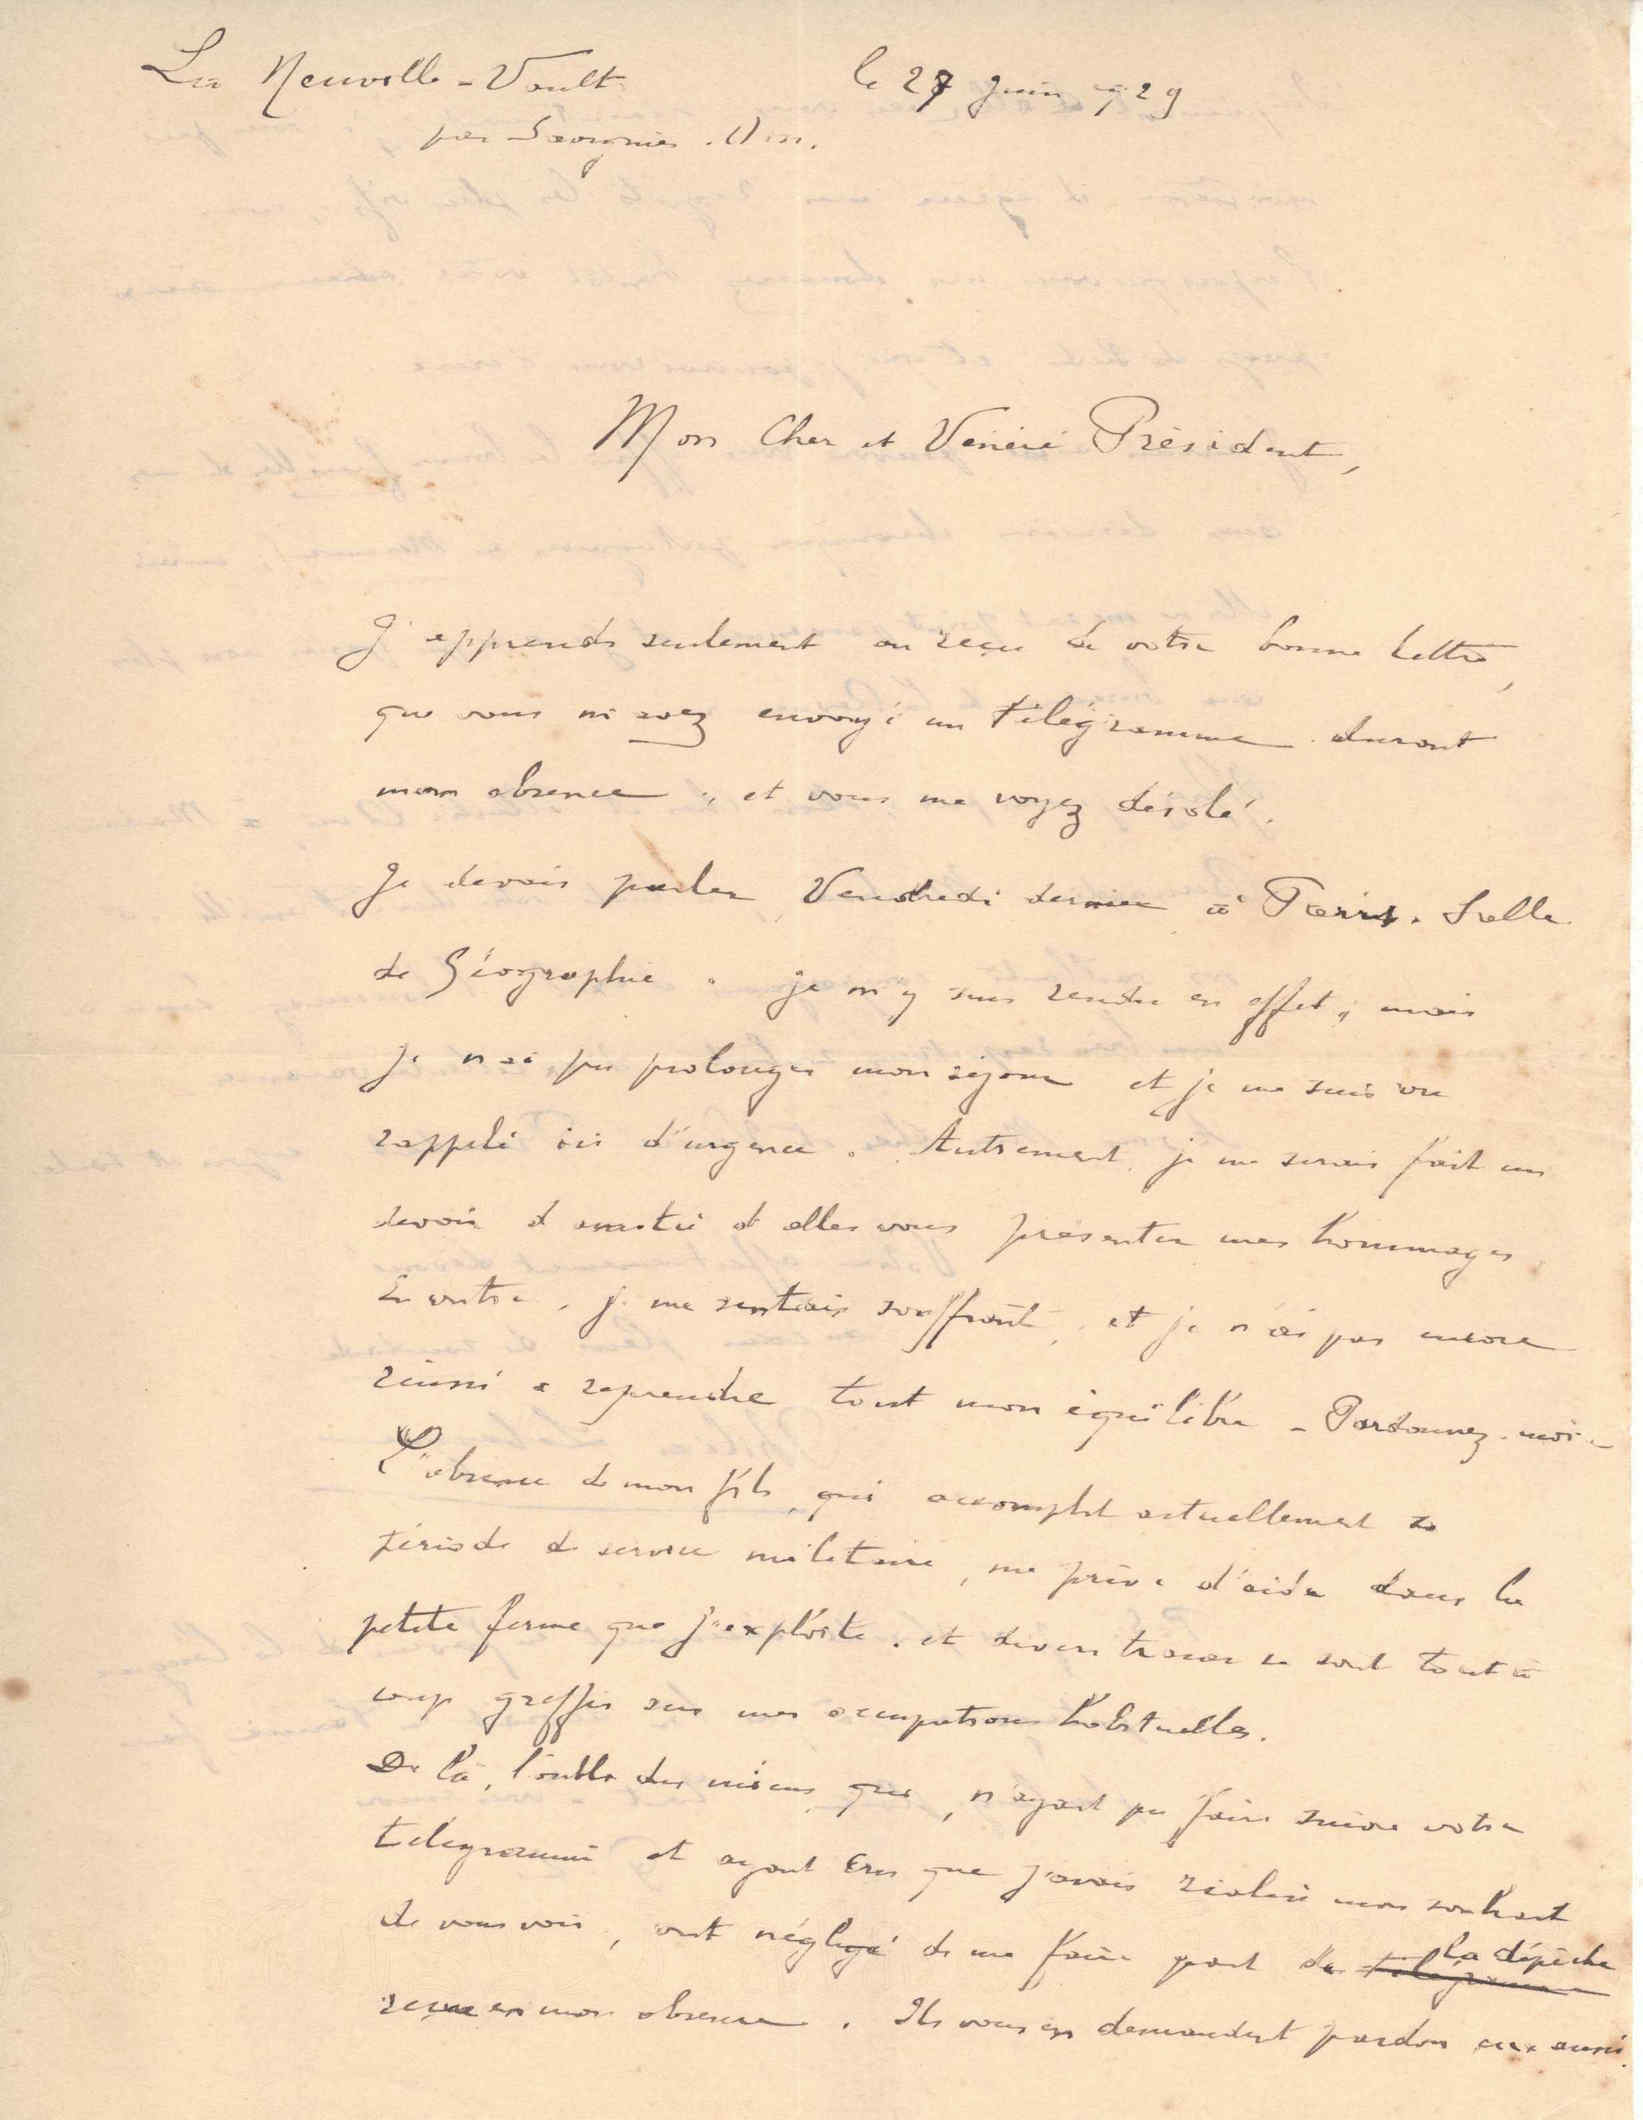 La Neuville-Vault le 27 Juin 1929
par Savignies. Oise.
Mon Cher et Vénéré Président,
J'apprends seulement au reçu de votre bonne lettre,
que vous m'avez envoyé un télégramme durant
mon absence, et vous me voyez désolé.
Je devais parler Vendredi dernier à Paris. Salle
de Géographie. Je m'y suis rendu en effet, mais
je n'ai pu prolonger mon séjour et je me suis vu
rappelé ici d'urgence. Autrement je me serais fait un
devoir d'amitié d'aller vous présenter mes hommages.
En outre, je me sentais souffrant, et je n'ai pas encore
réussi à reprendre tout mon équilibre - Pardonnez-moi -
L'absence de mon fils, qui accomplit actuellement sa
période de service militaire, me prive d'aide dans la
petite ferme que j'exploite, et divers tracas se sont tout à
coup greffés sur mes occupations habituelles.
De là, l'oubli des miens qui, n'ayant pu faire suivre votre
télégramme et ayant cru que j'avais réalisé mon souhait
de vous voir, ont négligé de me faire part de la dépêche
reçue en mon absence. Ils vous en demandent pardon eux aussi.